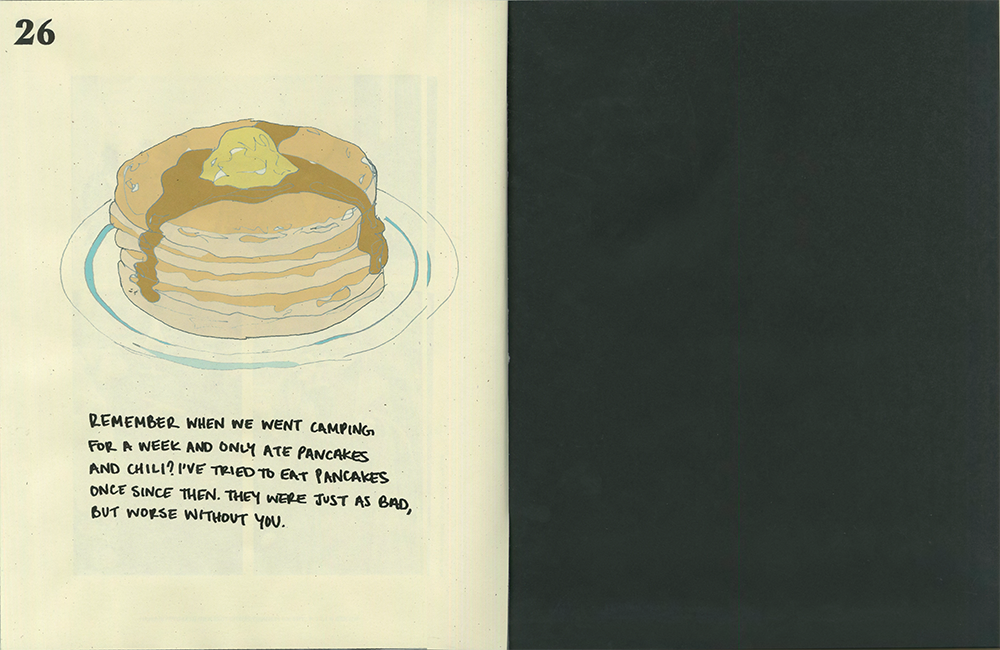 26
REMEMBER WHEN WE WENT CAMPING
FOR A WEEK AND ONLY ATE PANCAKES
AND CHILI? I'VE TRIED TO EAT PANCAKES
ONCE SINCE THEN. THEY WERE JUST AS BAD,
BUT WORSE WITHOUT YOU.